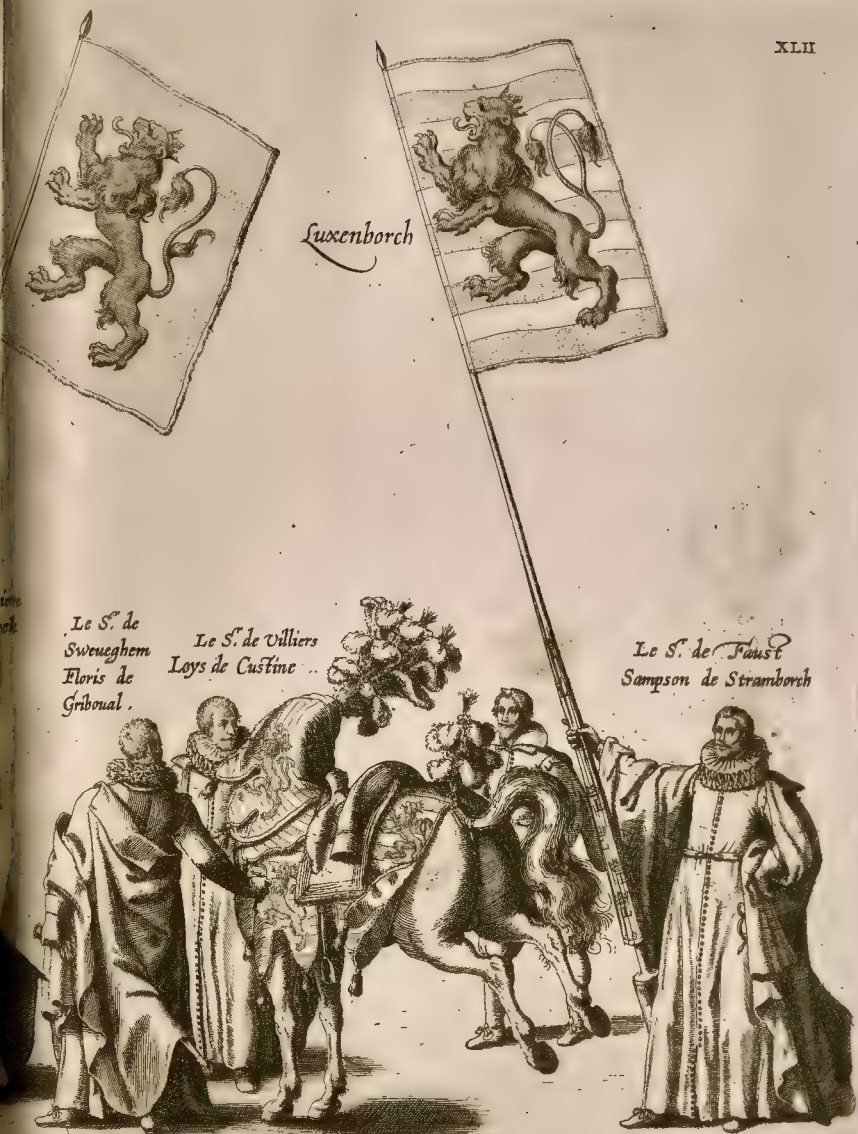 XLII
Luxenborch
Le Sr. de
Sweueghem
Floris de
Griboual.
Le Sr. de Villiers
Loys de Custine ..
Le Sr. de Faust
Sampson de Stramborch